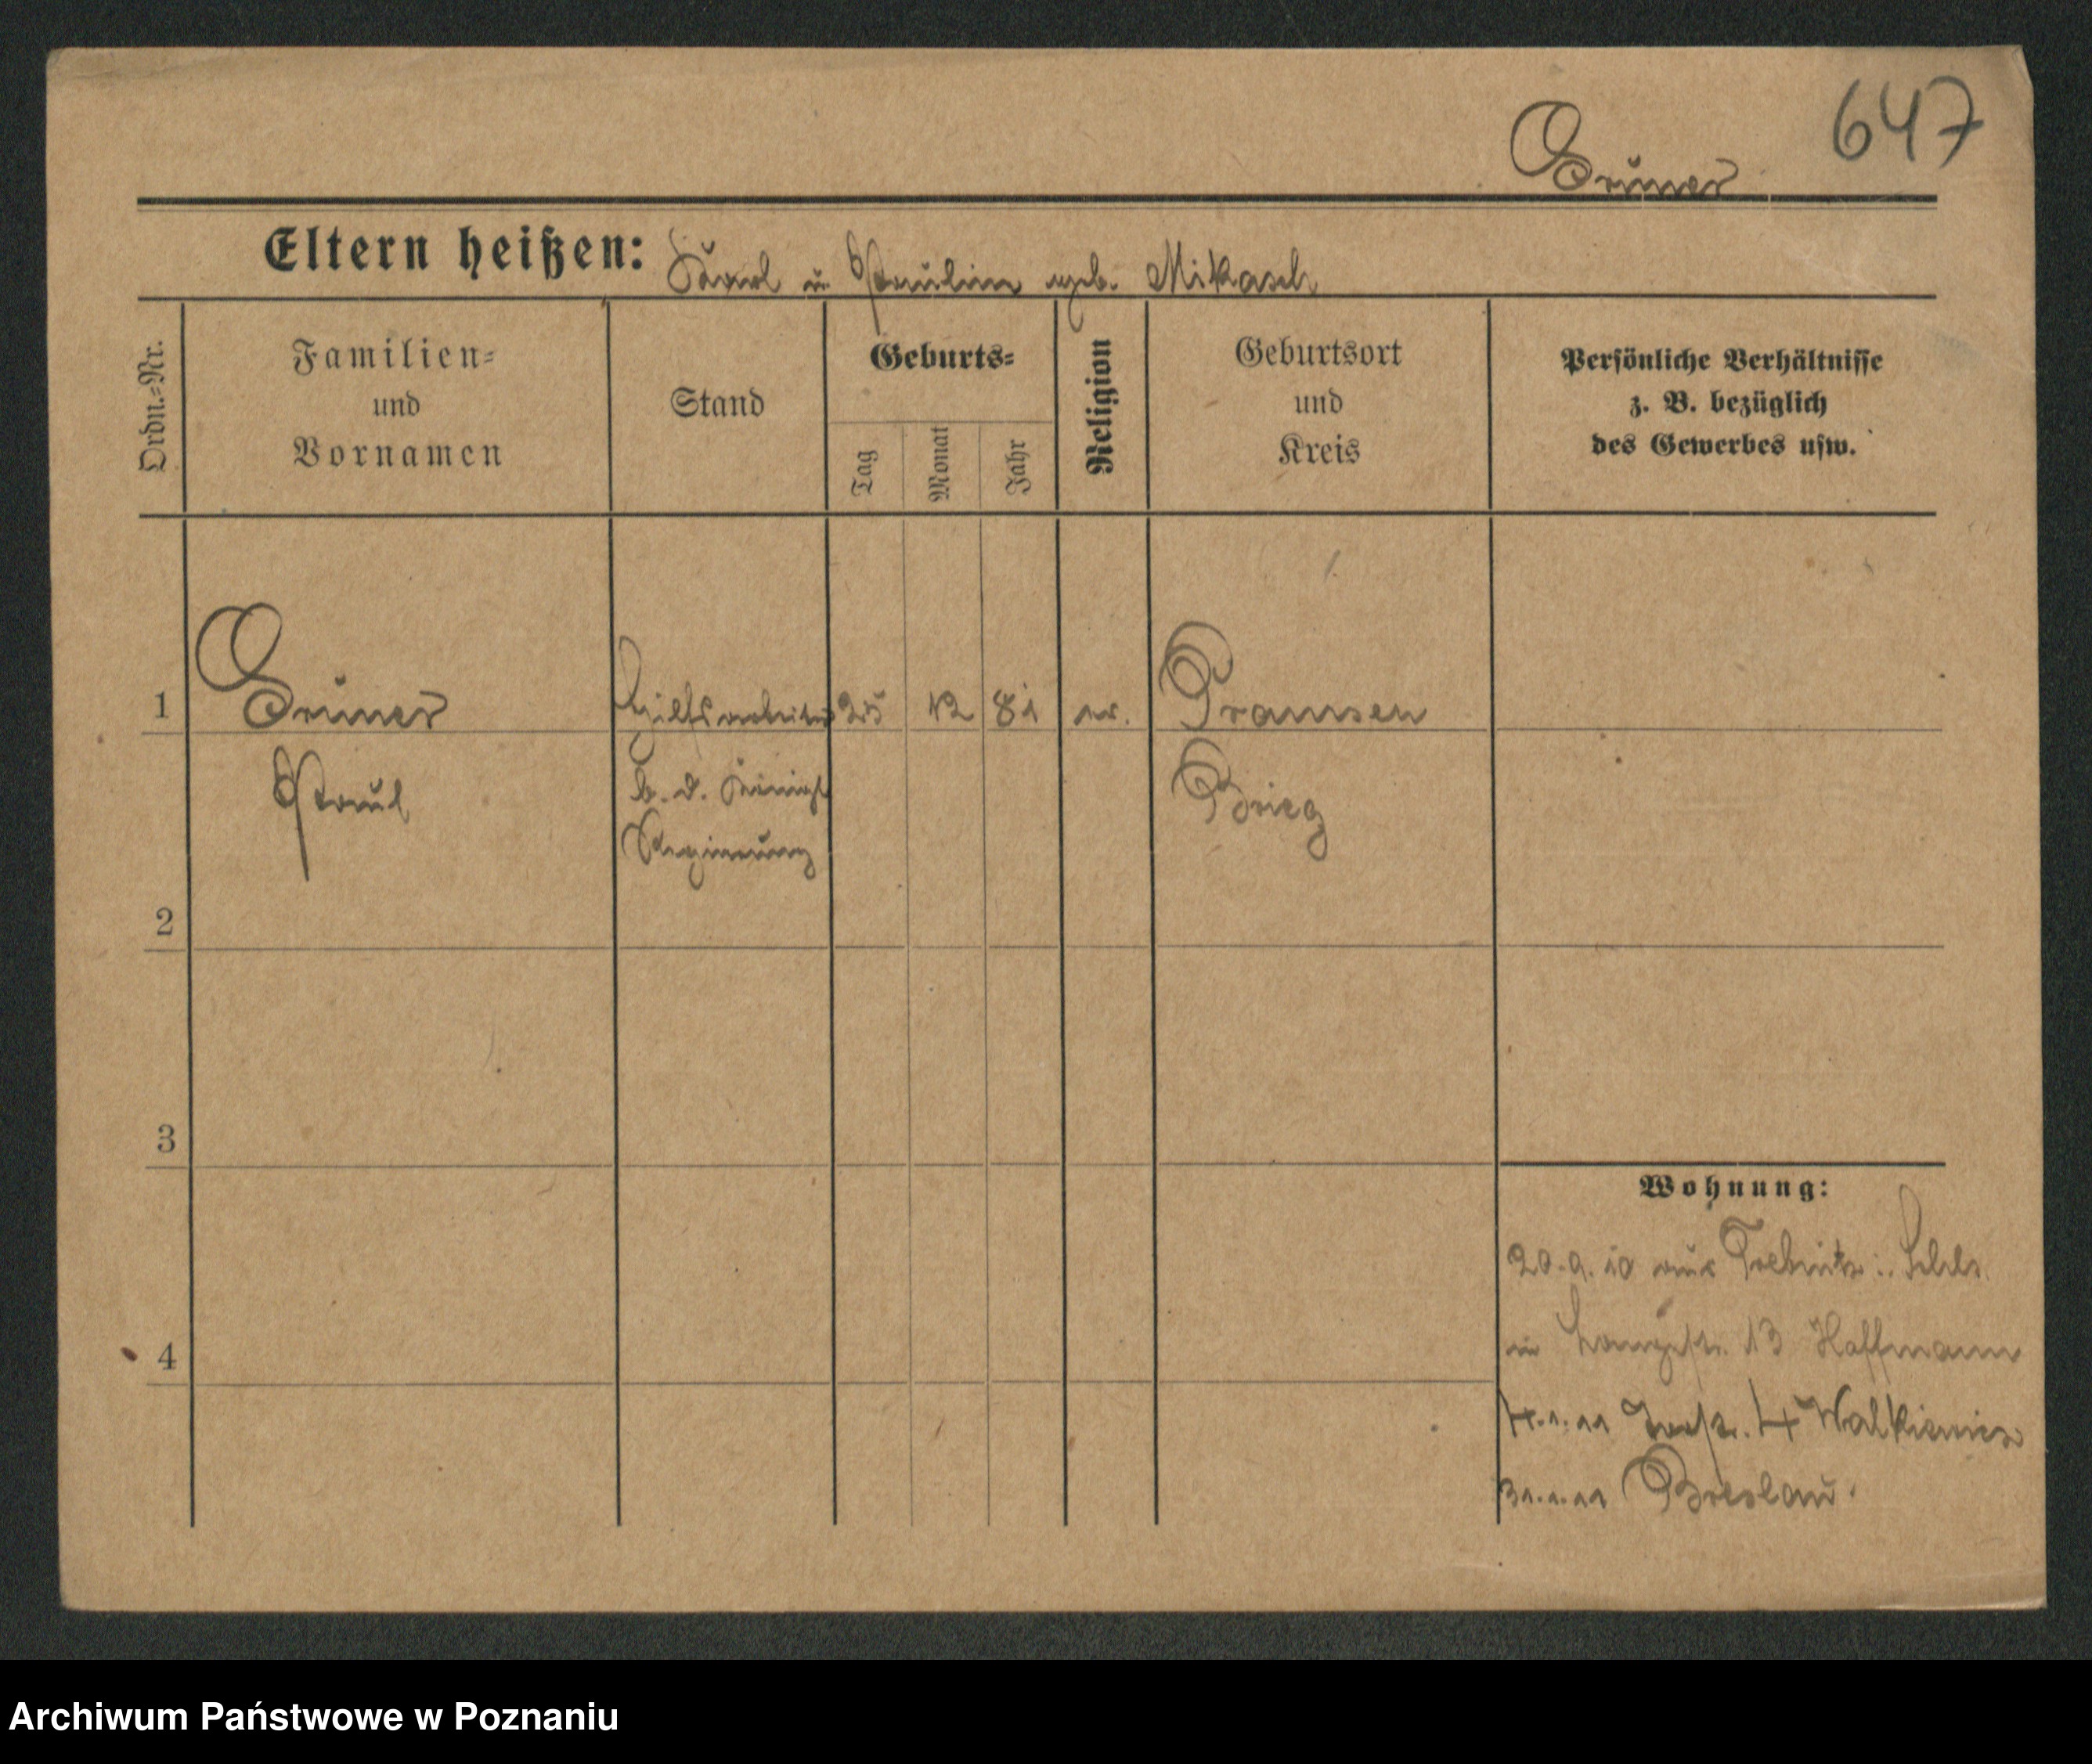 647
Grüner
Eltern heißen: Karl u. Pauline geb. Mikasch
Ordn.-Nr.
Familien-
und
Vornamen
Stand
Geburts-
Tag
Monat
Jahr
Religion
Geburtsort
und
Kreis
Persönliche Verhältnisse
z. B. bezüglich
des Gewerbes usw.
1
Grüner
Hilfsarbeiter
25
12
81
ev.
Pramsen
Paul
b. d. Königl
Regierung
Brieg
2
3
4
Wohnung:
20.9.10 aus Trebnitz i. Schls.
in Langestr. 13 Hoffmann
4.1.11 4 Walkiewicz
31.1.11 Breslau.
Archiwum Państwowe w Poznaniu